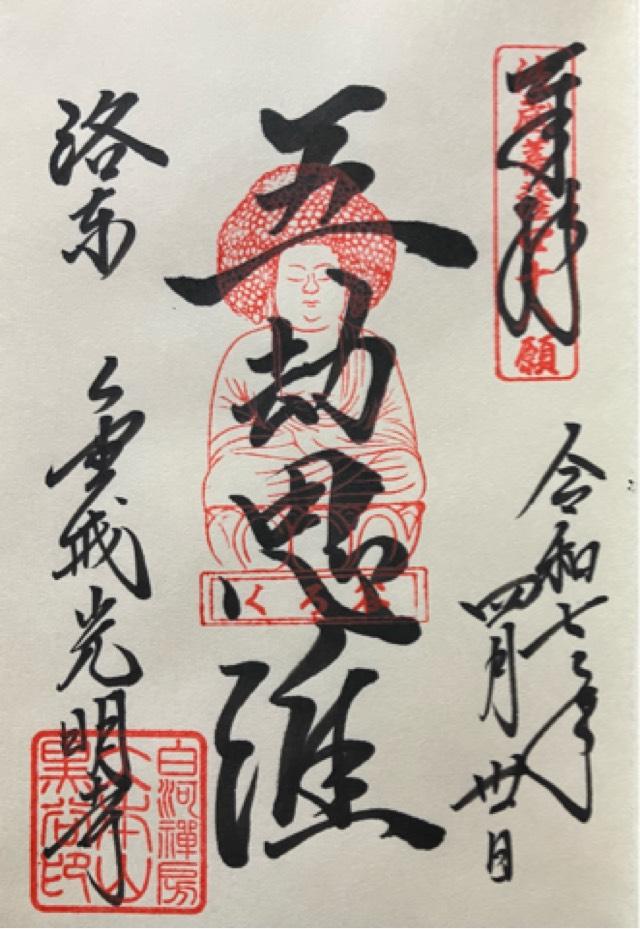 奉拝
法蔵菩薩四十八願
令和七年
四月丗日
五劫思惟
くろ谷
洛東
金戒光明寺
白河禪房
大本山
黒谷印